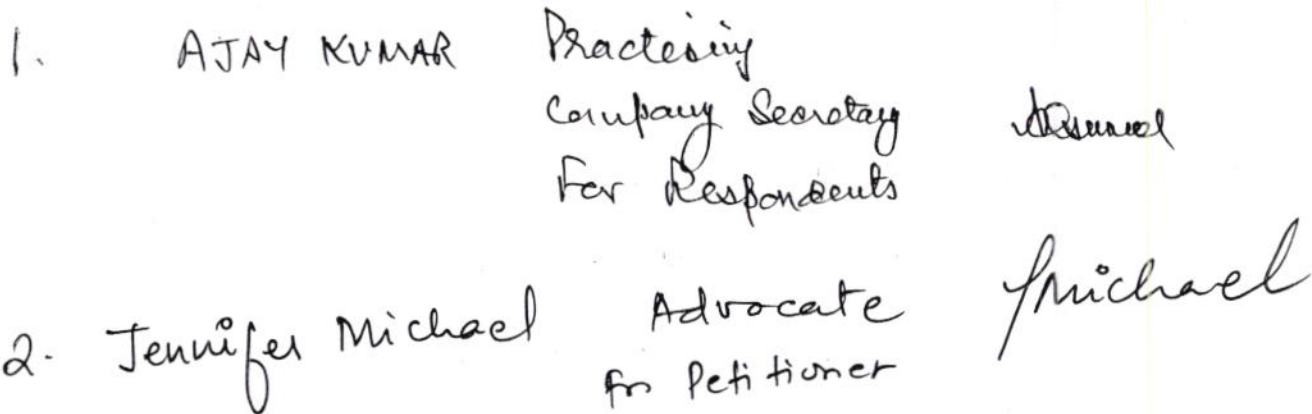 1. AJAY KUMAR Practising
Company Secretary
For Respondents
2. Jennifer Michael Advocate JMichael
for Petitioner